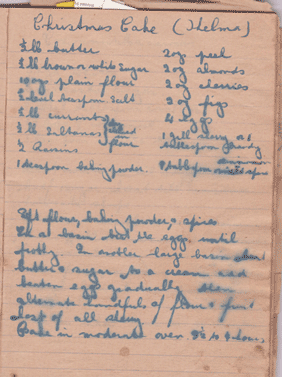 Christmas Cake (Thelma)
½ lb butter
½ lb brown or white sugar
10 ozs plain flour
½ level teaspoon salt
½ lb currants
½ lb Sultanas
½ Raisins
flour
1 teaspoon baking powder
2 ozs peel
2 ozs almonds
2 ozs cherries
3 ozs figs
4 eggs
1 gill sherry or
brandy
cinnamon
spice
Sift flour, baking powder, & spices
In a basin beat the eggs until
frothy. In another large basin
butter & sugar to a cream add
beaten egg gradually then
alternate handfuls of flour & fruit
Last of all sherry.
Bake in moderate oven 3½ to 4 hours